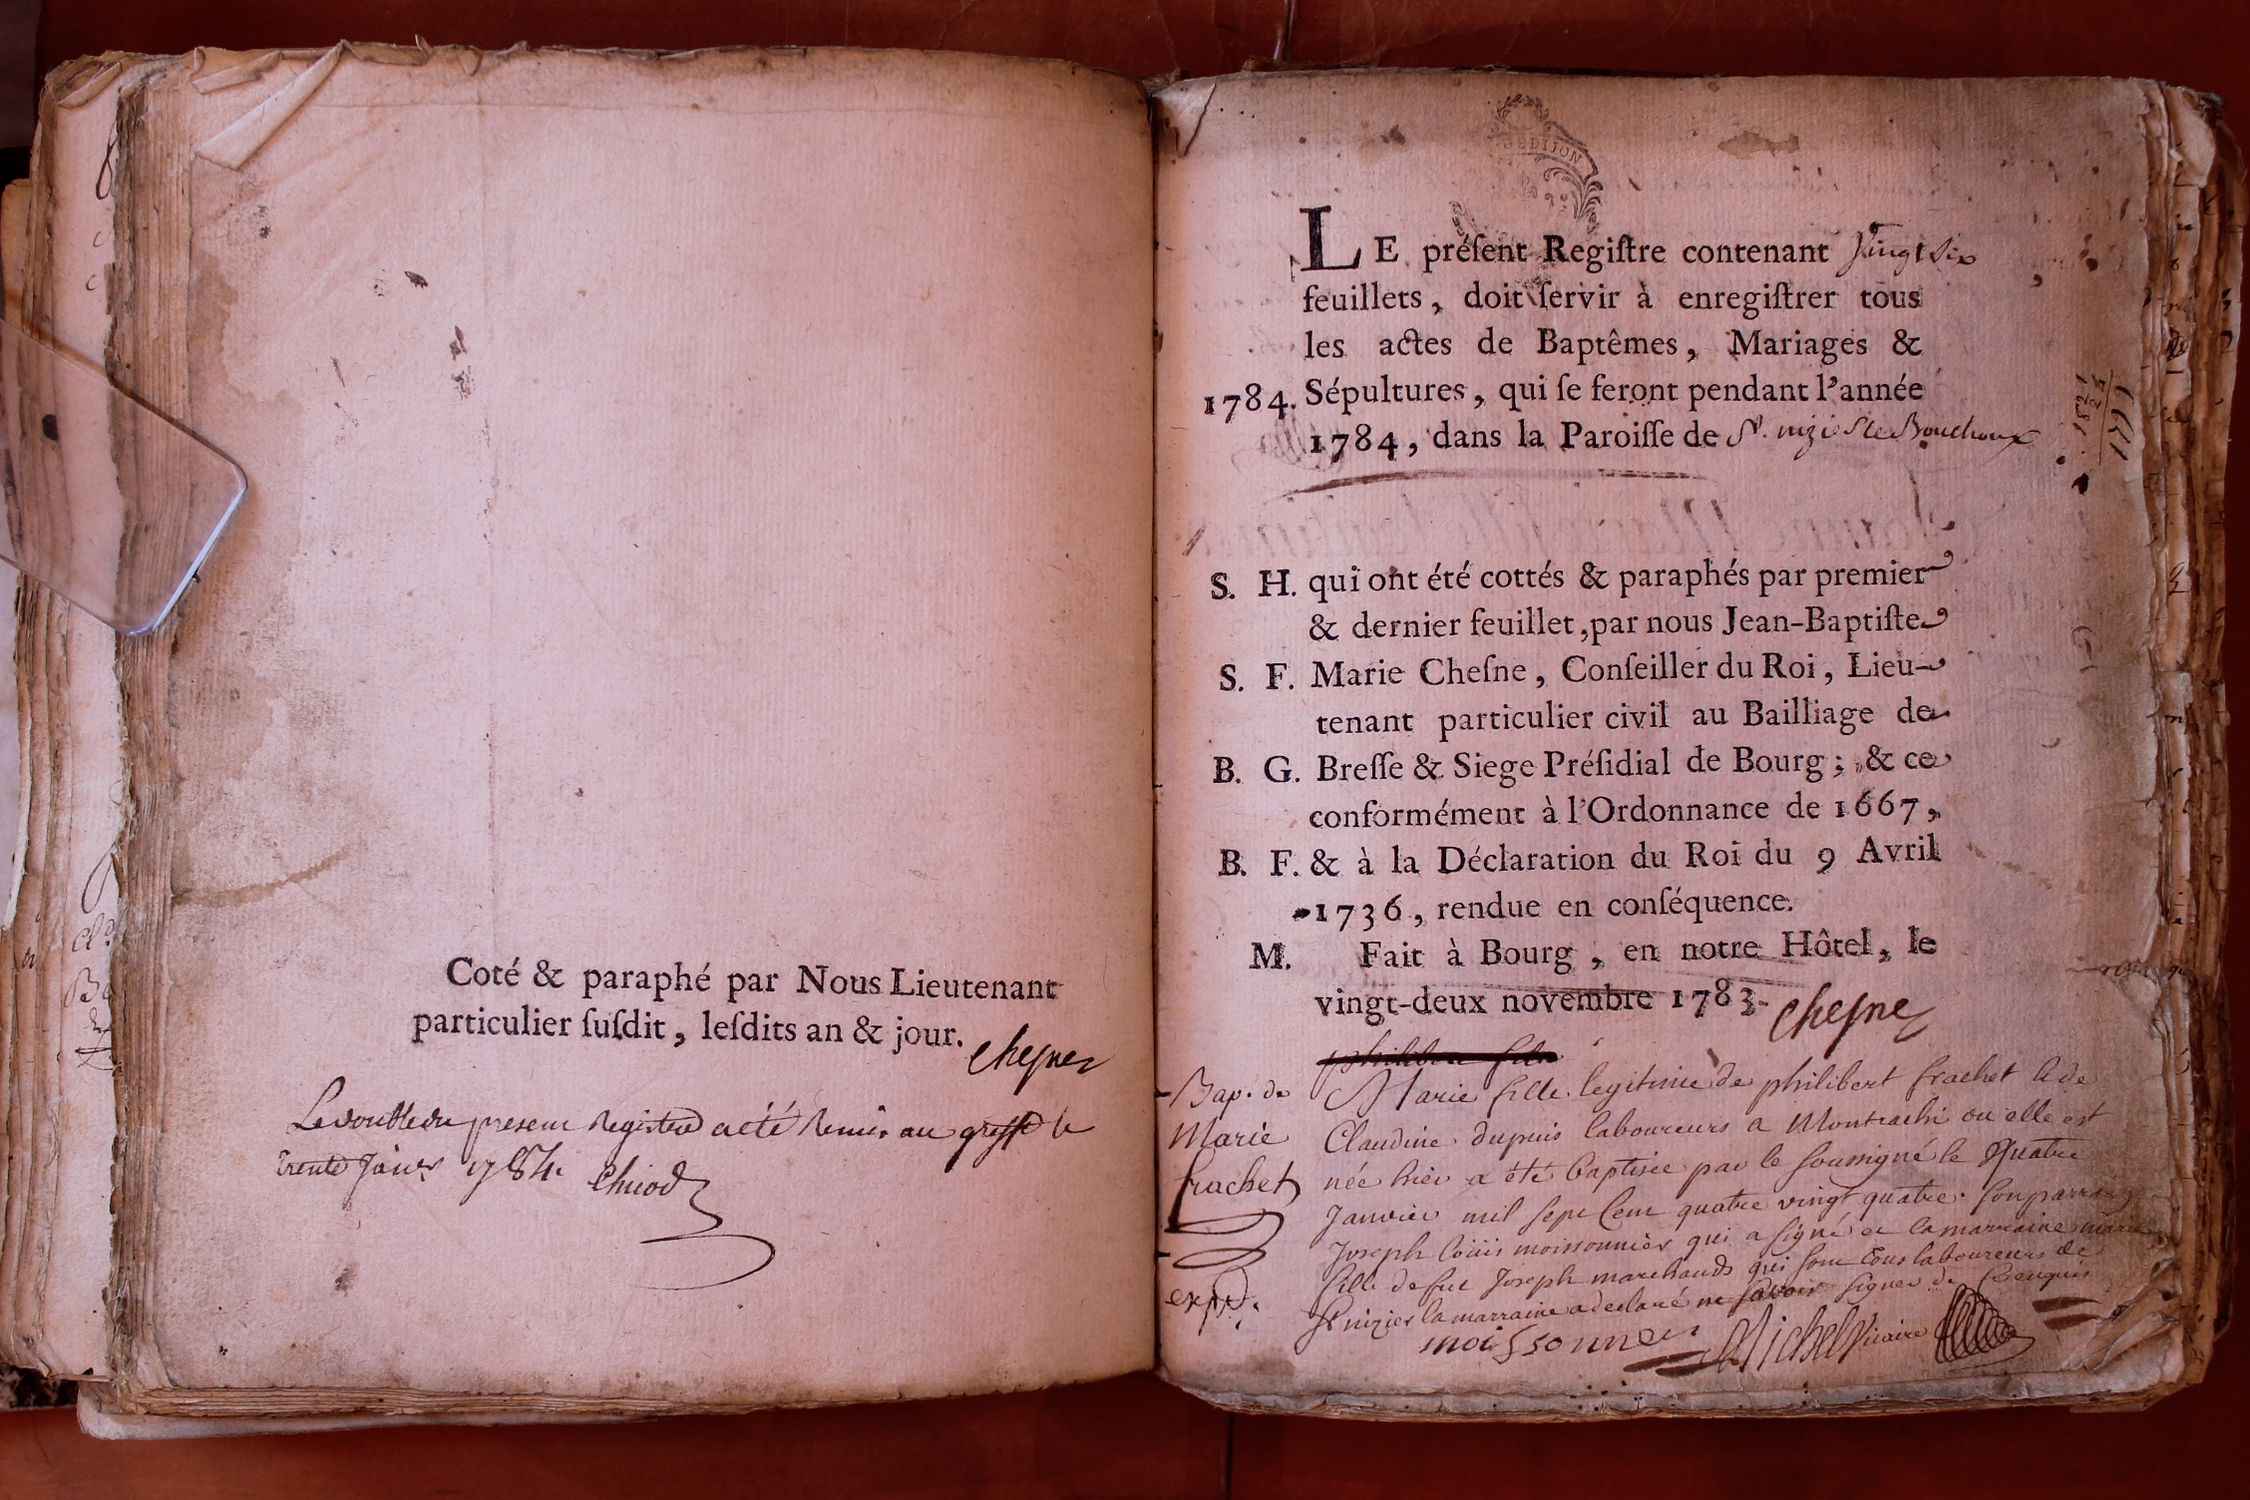 Coté & paraphé par Nous Lieutenant
particulier ſuſdit, leſdits an & jour.
Cheſne
Le double du present Registre a été Remis au greffe le
trente Janer 1784.
DIJON
LE préſent Regiſtre contenant Vingt Six
feuillets, doit ſervir à enregiſtrer tous
les actes de Baptêmes, Mariages &
1784. Sépultures, qui ſe feront pendant l'année
1784, dans la Paroiſſe de St. nizie Le Bouchoux
S. H. qui ont été cottés & paraphés par premier
& dernier feuillet, par nous Jean-Baptiſte
S. F. Marie Cheſne, Conſeiller du Roi, Lieu-
tenant particulier civil au Bailliage de
B. G. Breſſe & Siege Préſidial de Bourg; & ce
conformément à l'Ordonnance de 1667,
B. F. & à la Déclaration du Roi du 9 Avril
1736, rendue en conſéquence.
M. Fait à Bourg, en notre Hôtel, le
vingt-deux novembre 1783.
Cheſne
Bap. de
Marie
frachet
expd.
Marie fille legitime de philibert frachet & de
Claudine dupuis laboureurs a Montrachi ou elle est
née hier a été baptisée par le soussigné le Quatre
Janvier mil sept Cent quatre vingt quatre. son parrain
Joseph loüis moissonnier qui a signé et la marraine marie
fille de fut Joseph marchand qui sont tous laboureurs de
St nizier la marraine a declaré ne savoir signer de
moissonner
Michel Vicaire